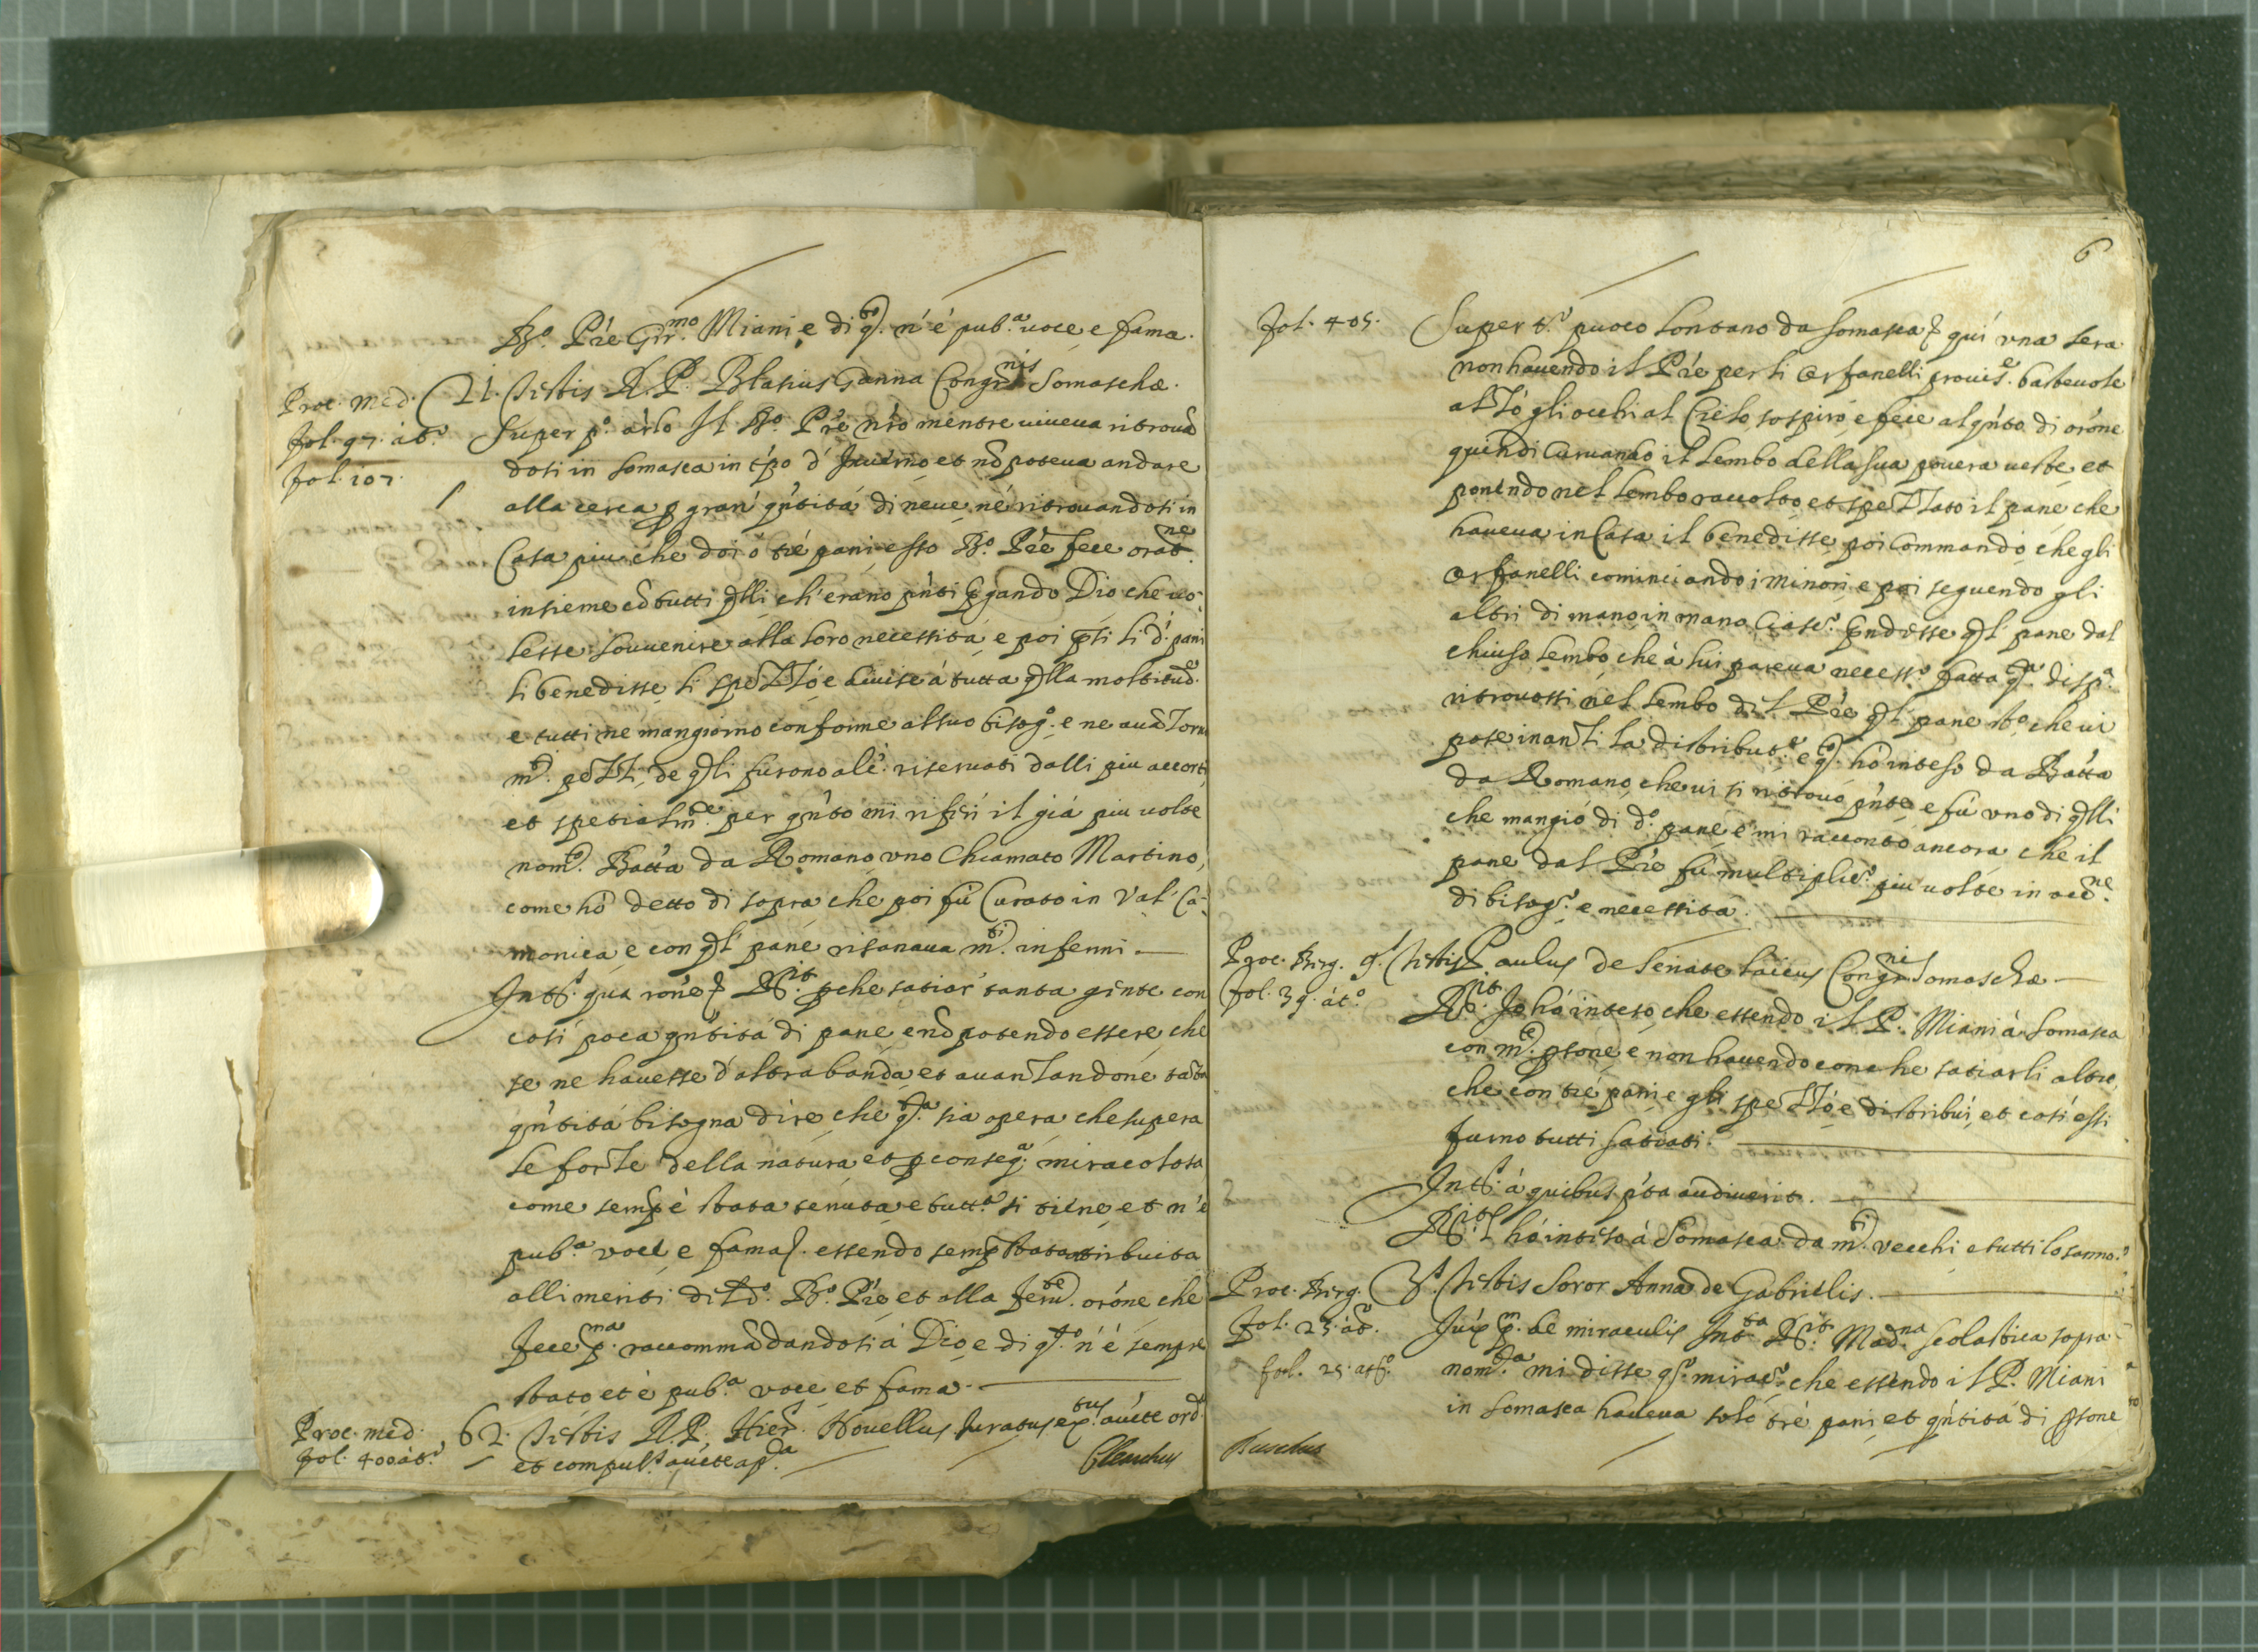 Bto. Pre Gir.mo Miani, e di qto. n'é pub.a uoce e fama.
Proc. med. 21. Testis R. P. Blasius Ganna Congr.nis Somaschæ.
fol. 97. àt.o Super p.o árlo Il Bto. Pre nro mentre uiueua ritrouã
fol. 107. dosi in Somasca in tpo d' Inuerno et nõ poteua andare
alla cerca p gran' qntitá di neue, né ritrouandosi in
Casa piu che doi ó tré pani, esso Bto. Pre fece orat.ne
insieme cõ tutti qlli, ch'erano pnti pgando Dio che uo-
lesse souuenire alla loro necessitá, e poi psi li d.i pani
li benedisse, li spezzó, e diuise á tutta qlla moltitud.e
e tutti ne mangiorno conforme al suo bisog.o e ne auãzorno
m.ti pezzi, de qlli furono alc.i riseruati dalli piu accorti
et spetialm.te per qnto mi riferi il giá piu uolte
nom.to Batta da Romano uno Chiamato Martino,
come hó detto di sopra che poi fú Curato in Val' Ca-
monica, e con ql' pane risanaua m.ti infermi. —
Int.s qua rone Rit. pche satiar' tanta gente con
cosi poca qntitá di pane, e nõ potendo essere, che
se ne hauesse d'altra banda, et auanzandone tãta
qntitá bisogna dire, che qta. sia opera, che supera
le forze della natura, et p conseq.a miracolosa
come semp é stata tenuta, e tutt.a si tiene, et n'é
pub.a voce e fama. essendo semp stata attribuita
alli meriti di d.o Bto. Pre, et alla feru.te orone che
fece p.ma raccommãdandosi á Dio, e di qto. n'é sempre
stato et é pub.a voce, et fama. —
Proc. med. 62. Testis R. P. Hier. Nouellus Iuratus
fol. 400 àt.o et compul.s
6
fol. 405. Super puoco lontano da Somasca qui una sera
non hauendo il Pre per li Orfanelli prouis.e basteuole
alzó gli occhi al Cielo, sospiró, e fece alqnto di orone
quindi Curuando il lembo della sua pouera ueste, et
ponendo nel lembo raccolto, et spezzato il pane, che
haueua in Casa il benedisse, poi Commandó, che gli
Orfanelli cominciando i minori, e poi seguendo gli
altri di mano in mano Ciasc.o prndesse ql' pane dal
chiuso lembo, che à lui pareua necess.o fatta qta. disp.a
ritrouossi nel lembo del Pre ql' pane sto, che ui
pose inanzi la distribut.e e qto. hó inteso da Batta
da Romano, che ui si ritrouó pnte, e fú uno di qlli
che mangió di d.o pane, e mi raccontó ancora, che il
pane dal Pre fú multiplic.o piu uolte in occ.ne
di bisog.o e necessita. —
Proc. Berg. 9.s Testis Paulus de Senate laicus Congr.nis Somaschæ —
fol. 39. àt.o Rit. Io hó inteso, che essendo il P. Miani à Somasca
con m.te psone, e non hauendo con che satiarli altro,
che con tré pani, e gli spezzó, e distribuì, et cosi essi
furno tutti satiati. —
Int.s á quibus pta audiuerit. —
Rit. l'hó inteso á Somasca da m.ti vecchi e tutti lo sanno.
Proc. Berg. 3.s Testis Soror Anna de Gabrielis. —
fol. 25. àt.o de miraculis Int.ta Rit. Mad.na Scolastica sopra-
fol. 25. at.o nom.ta mi disse q.o mirac.o che essendo il P. Miani
in Somasca haueua soló tré pani, et qntitá di psone